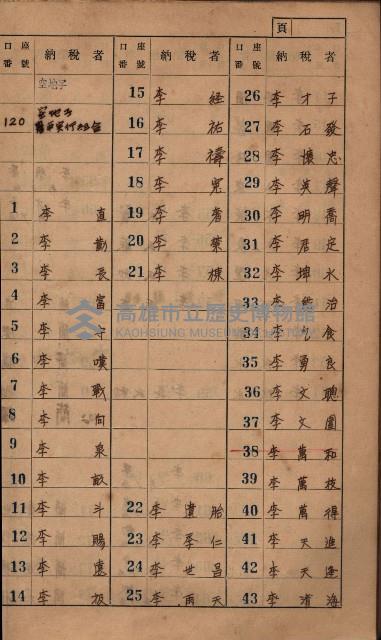 頁
口番 座號 納稅者
空地字
120
1 李直
2 李勸
3 李長
4 李富
5 李守
6 李嘆
7 李戰
8 李向
9 李泉
10 李畝
11 李斗
12 李賜
13 李應
14 李
口番 座號 納稅者
15 李經
16 李祐
17 李禱
18 李
19 李
20 李葉
21 李棟
22 李遺胎
23 李季仁
24 李世昌
25 李雨天
口番 座號 納稅者
26 李才子
27 李石發
28 李懷忠
29 李英聲
30 李明喬
31 李居定
32 李坤永
33 李治
34 李乞食
35 李勇良
36 李文聰
37 李文圍
38 李萬和
39 李萬枝
40 李萬得
41 李天進
42 李天逢
43 李清海
高雄市立歷史博物館
KAOHSIUNG MUSEUM OF HISTORY